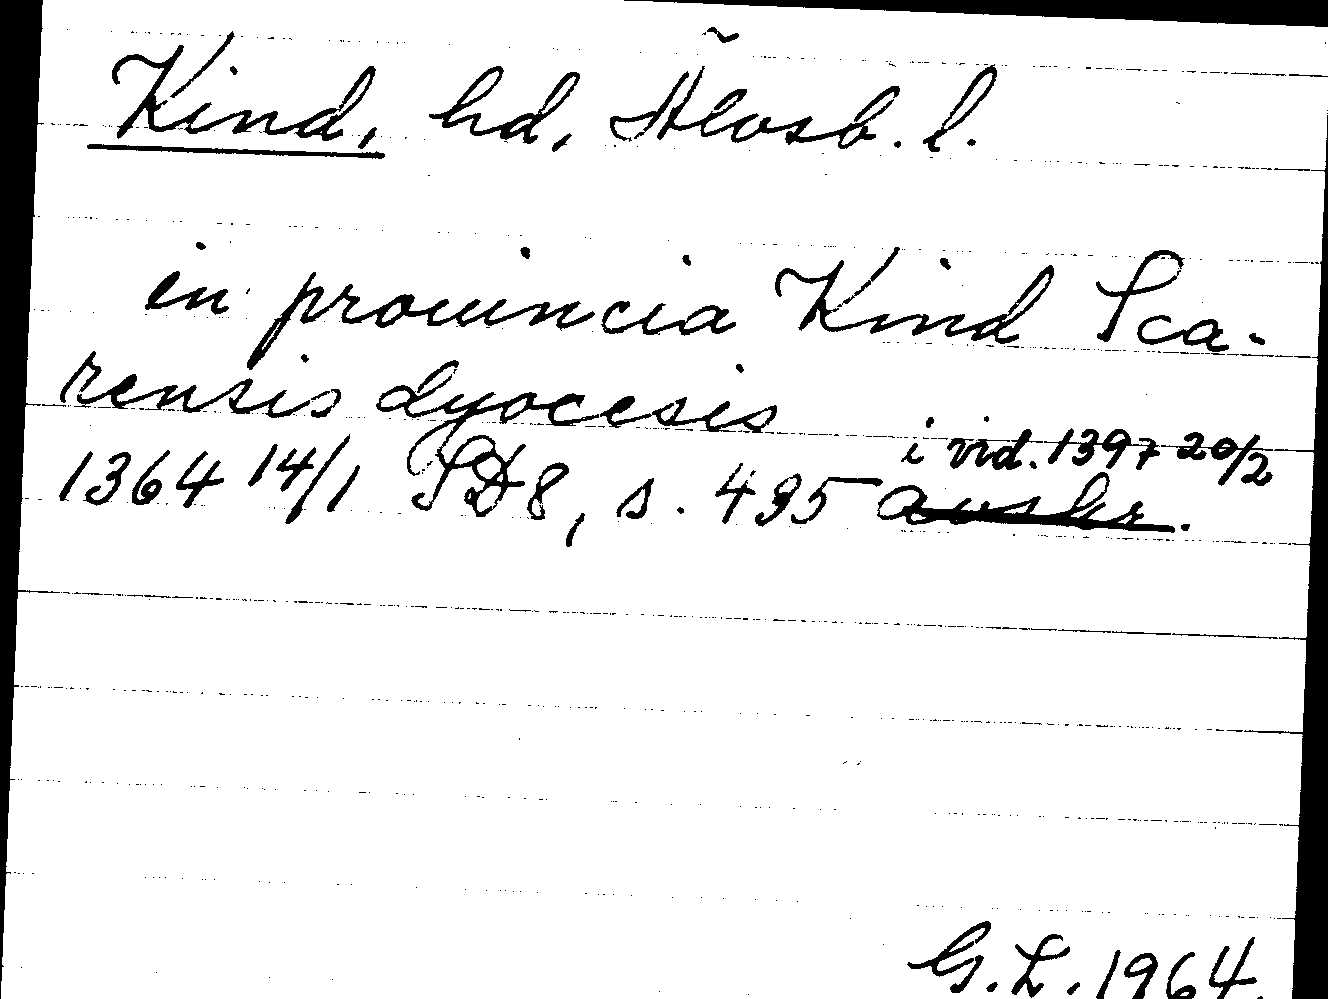 Kind, hd, Älvsb. l.
in prouincia Kind Sca-
rensis dyocesis
i vid. 1397 20/2
1364 14/1 SD8, s. 495 avskr.
G.L. 1964.